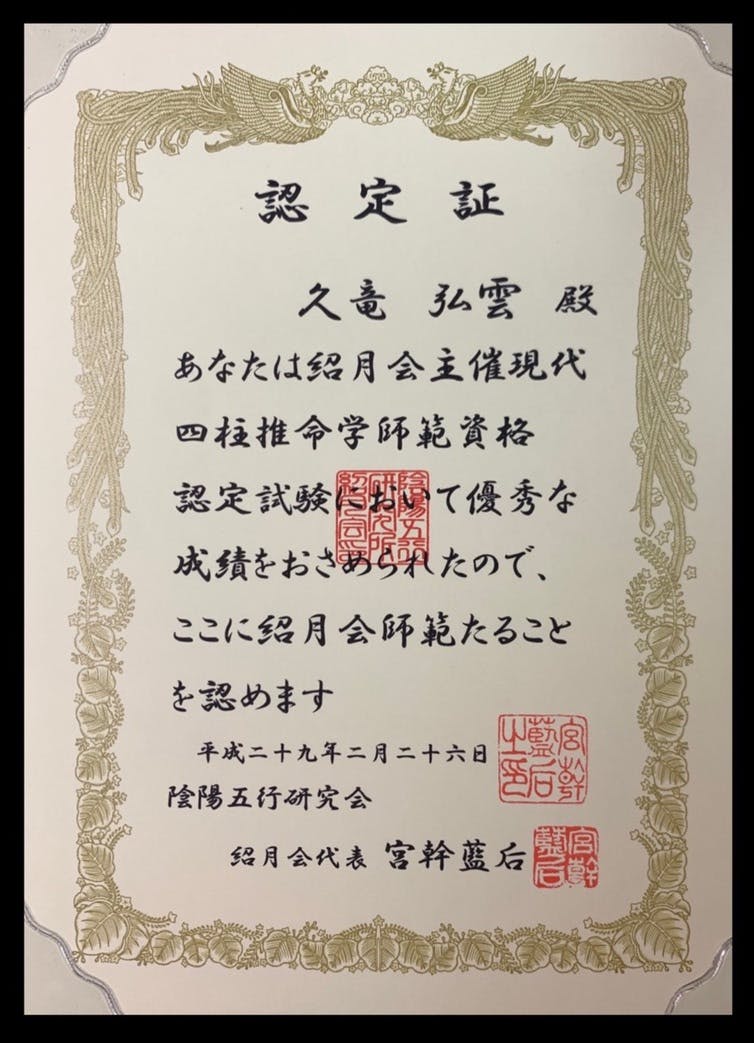 認定証
久竜 弘雲 殿
あなたは紹月会主催現代
四柱推命学師範資格
認定試験において優秀な
成績をおさめられたので、
ここに紹月会師範たること
を認めます
平成二十九年二月二十六日
陰陽五行研究会
紹月会代表 宮幹藍后
宮幹藍后之印
宮幹藍后